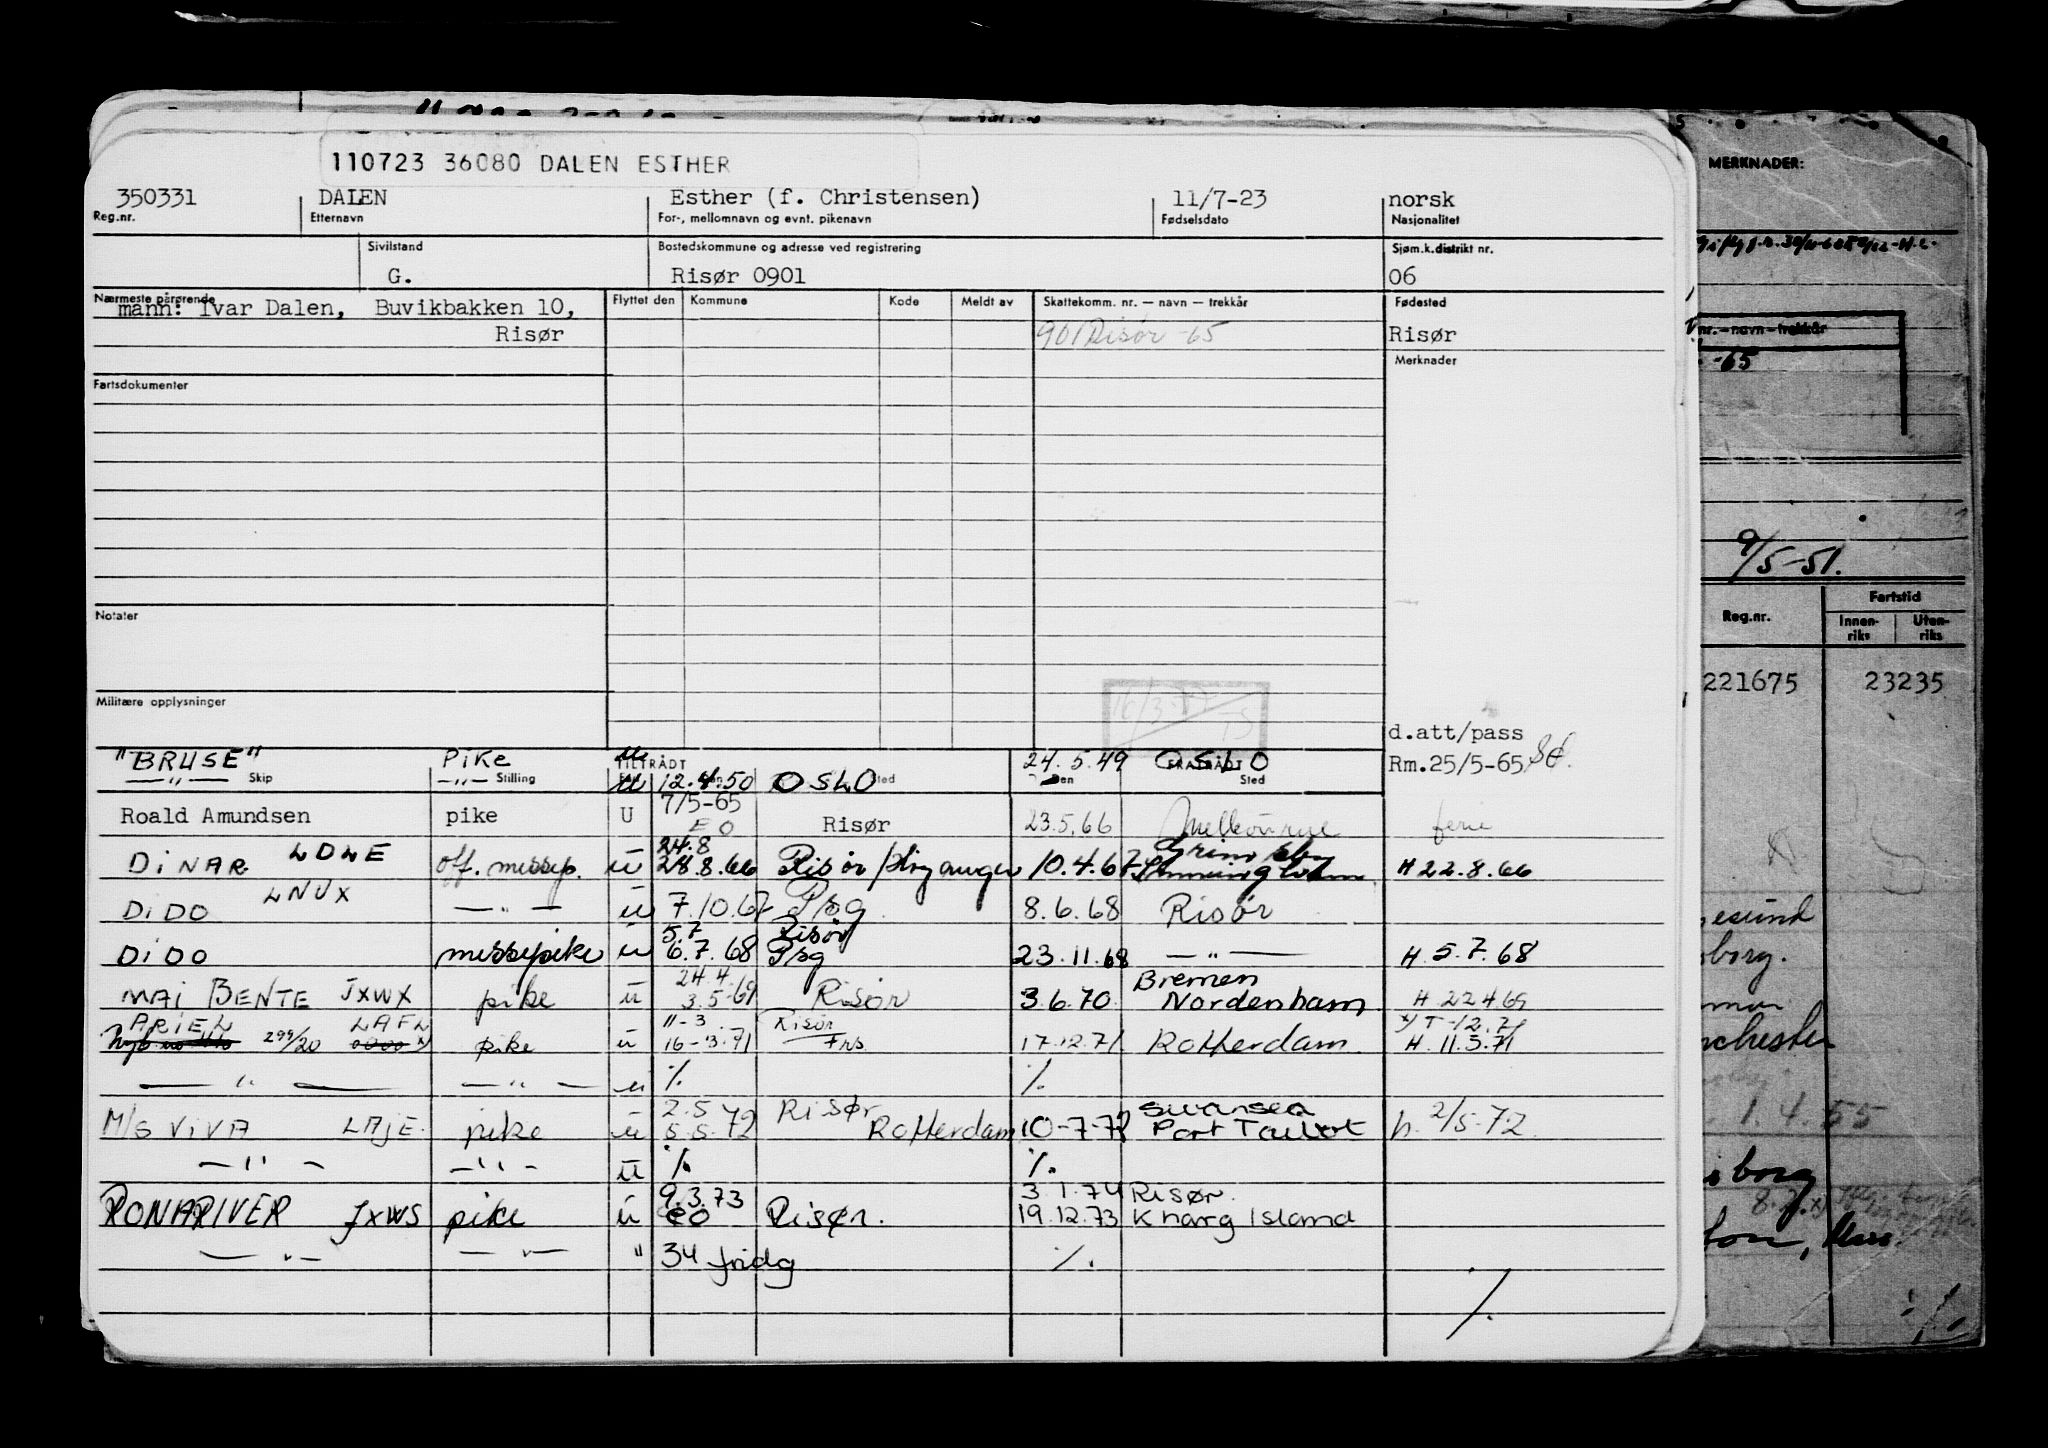 110723 36080 DALEN ESTHER
350331 DALEN Esther (f. Christensen) 11/7-23 norsk
Reg.nr. Etternavn For-, mellomnavn og evnt. pikenavn Fødselsdato Nasjonalitet
Sivilstand Bostedskommune og adresse ved registrering Sjøm.k.distrikt nr.
G. Risør 0901 06
Nærmeste pårørende Flyttet den Kommune Kode Meldt av Skattekomm. nr. — navn — trekkår Fødested
mann: Ivar Dalen, Buvikbakken 10,
Risør 901 Risør -65 Risør
Merknader
Fartsdokumenter
Notater
Militære opplysninger
16/3-77
TS
d.att/pass
Rm.25/5-65
"BRUSE" PiKe 24.5.49 OSLO
TILTRÅDT FRATRÅDT
—"— Skip —"— Stilling Fart 12.4.50 OSLO Sted Den Sted
Roald Amundsen pike U 7/5-65 EO Risør 23.5.66 Melbourne ferie
DiNAR LDLE off. messep. u 24.8 28.8.66 Risør/ 10.4.67 H 22.8.66
DiDO LNUX —"— u 7.10.67 Psg 8.6.68 Risør
DiDO messepike u 5.7 6.7.68 Risør Psg 23.11.68 —"— H 5.7.68
MAi BENTE JXWX pike u 24.4. 3.5-69 Risør 3.6.70 Bremen Nordenham H 22469
ARIEL LAFL 299/20 pike u 11-3 16-3.71 Risør 17.12.71 Rotterdam x) T-12.71 H. 11.3.71
—"— —"— u % %
M/S ViVA LAJE. pike u 2.5 5.5.72 Risør Rotterdam 10-7-72 Swansea Port Talbot h. 2/5-72
—"— —"— u % %
RONARIVER JXWS pike u 9.3.73 EO Risør. 3.1.74 Risør. 19.12.73 Kharg Island
—"— —"— " 34 fridg %.
%
MERKNADER:
nr.—navn—trekkår
-65
9/5-51.
Reg.nr. Fartstid
Innen-riks Uten-riks
221675 23235
1.4.55